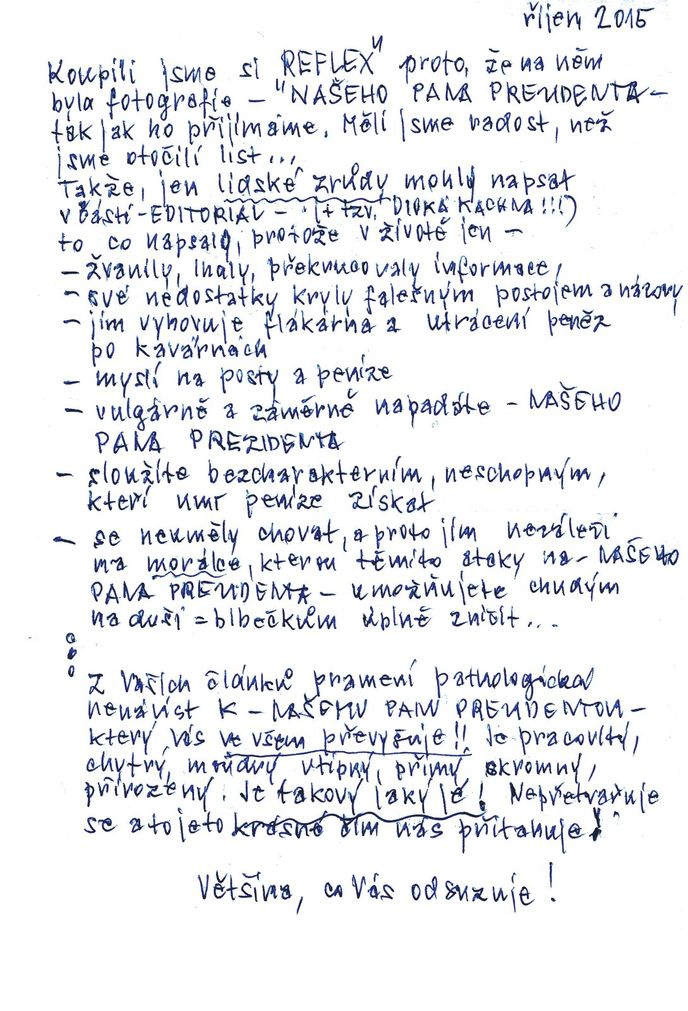 říjen 2015
Koupili jsme si REFLEX" proto, že na něm
byla fotografie – "NAŠEHO PANA PREZIDENTA –
tak jak ho přijímáme. Měli jsme radost, než
jsme otočili list...
Takže, jen lidské zrůdy mohly napsat
v části – EDITORIAL – (+ tzv. DIOKA KACHNA!!!)
to co napsaly, protože v životě jen –
– žvanily, lhaly, překrucovaly informace,
– své nedostatky kryly falešným postojem a názory
– jim vyhovuje flákárna a utrácení peněz
po kavárnách
– myslí na posty a peníze
– vulgárně a záměrně napadáte – NAŠEHO
PANA PREZIDENTA
– sloužíte bezcharakterním, neschopným,
kteří umí peníze získat
– se neuměly chovat, a proto jim nezáleží
na morálce, kterou těmito ataky na – NAŠEHO
PANA PREZIDENTA – umožňujete chudým
na duši = blbečkům úplně zničit...
Z Vašich článků pramení pathologická
nenávist K – NAŠEMU PANU PREZIDENTOVI –
který Vás ve všem převyšuje!! Je pracovitý,
chytrý, moudrý vtipný, přímý skromný,
přirozený. Je takový jaký je! Nepřetvařuje
se a to je to krásné čím nás přitahuje!
Většina, co Vás odsuzuje!